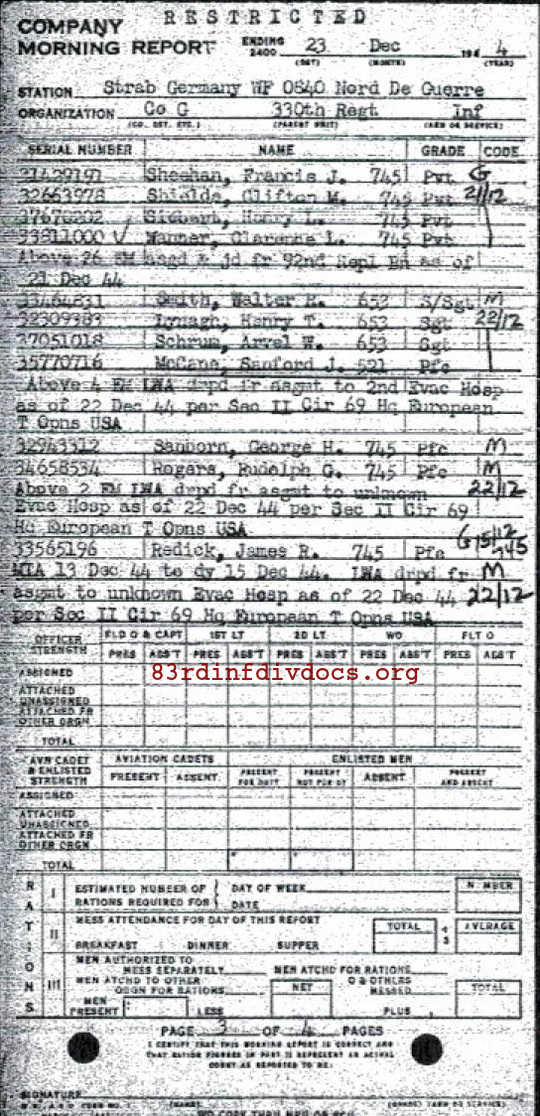 RESTRICTED
COMPANY
MORNING REPORT ENDING 2400 23 Dec 194 4
(DAY) (MONTH) (YEAR)
STATION Strab Germany WF 0840 Nord De Guerre
ORGANIZATION Co G 330th Regt Inf
(CO., DET. ETC.) (PARENT UNIT) (ARM OR SERVICE)
SERIAL NUMBER NAME GRADE CODE
31429191 Sheehan, Francis J. 745 Pvt G
32663978 Shields, Clifton M. 745 Pvt 21/12
37678202 Siebert, Henry L. 745 Pvt
33811000 √ Wanner, Clarence L. 745 Pvt
Above 26 EM asgd & jd fr 92nd Repl Bn as of
21 Dec 44
Smith, Walter R. 653 S/Sgt M
32309383 Lynagh, Henry T. 653 Sgt 22/12
37051018 Schrum, Arvel W. 653 Sgt
35770716 McCane, Sanford J. 521 Pfc
Above 4 EM LWA drpd fr asgmt to 2nd Evac Hosp
as of 22 Dec 44 per Sec II Cir 69 Hq European
T Opns USA
32943312 Sanborn, George H. 745 Pfc M
34658534 Rogers, Rudolph G. 745 Pfc M
Above 2 EM LWA drpd fr asgmt to unknown 22/12
Evac Hosp as of 22 Dec 44 per Sec II Cir 69
Hq European T Opns USA G 15/12
33565196 Redick, James R. 745 Pfc 745
MIA 13 Dec 44 to dy 15 Dec 44. LWA drpd fr M
asgmt to unknown Evac Hosp as of 22 Dec 44 22/12
per Sec II Cir 69 Hq European T Opns USA
OFFICER STRENGTH FLD O & CAPT 1ST LT 2D LT WO FLT O
PRES ABS'T PRES ABS'T PRES ABS'T PRES ABS'T PRES ABS'T
83rdinfdivdocs.org
ASSIGNED
ATTACHED UNASSIGNED
ATTACHED FR OTHER ORGN
TOTAL
AVN CADET & ENLISTED STRENGTH AVIATION CADETS ENLISTED MEN
PRESENT ABSENT PRESENT FOR DUTY PRESENT NOT FOR DY ABSENT PRESENT AND ABSENT
ASSIGNED
ATTACHED UNASSIGNED
ATTACHED FR OTHER ORGN
TOTAL
RATIONS
I ESTIMATED NUMBER OF DAY OF WEEK NUMBER
RATIONS REQUIRED FOR DATE
II MESS ATTENDANCE FOR DAY OF THIS REPORT TOTAL ÷ 3 AVERAGE
BREAKFAST DINNER SUPPER
III MEN AUTHORIZED TO MESS SEPARATELY MEN ATCHD FOR RATIONS
MEN ATCHD TO OTHER ORGN FOR RATIONS NET O & OTHERS MESSED TOTAL
MEN PRESENT LESS PLUS
PAGE 3 OF 4 PAGES
I CERTIFY THAT THIS MORNING REPORT IS CORRECT AND
THAT RATION FIGURES IN PART II REPRESENT AN ACTUAL
COUNT AS REPORTED TO ME.
SIGNATURE